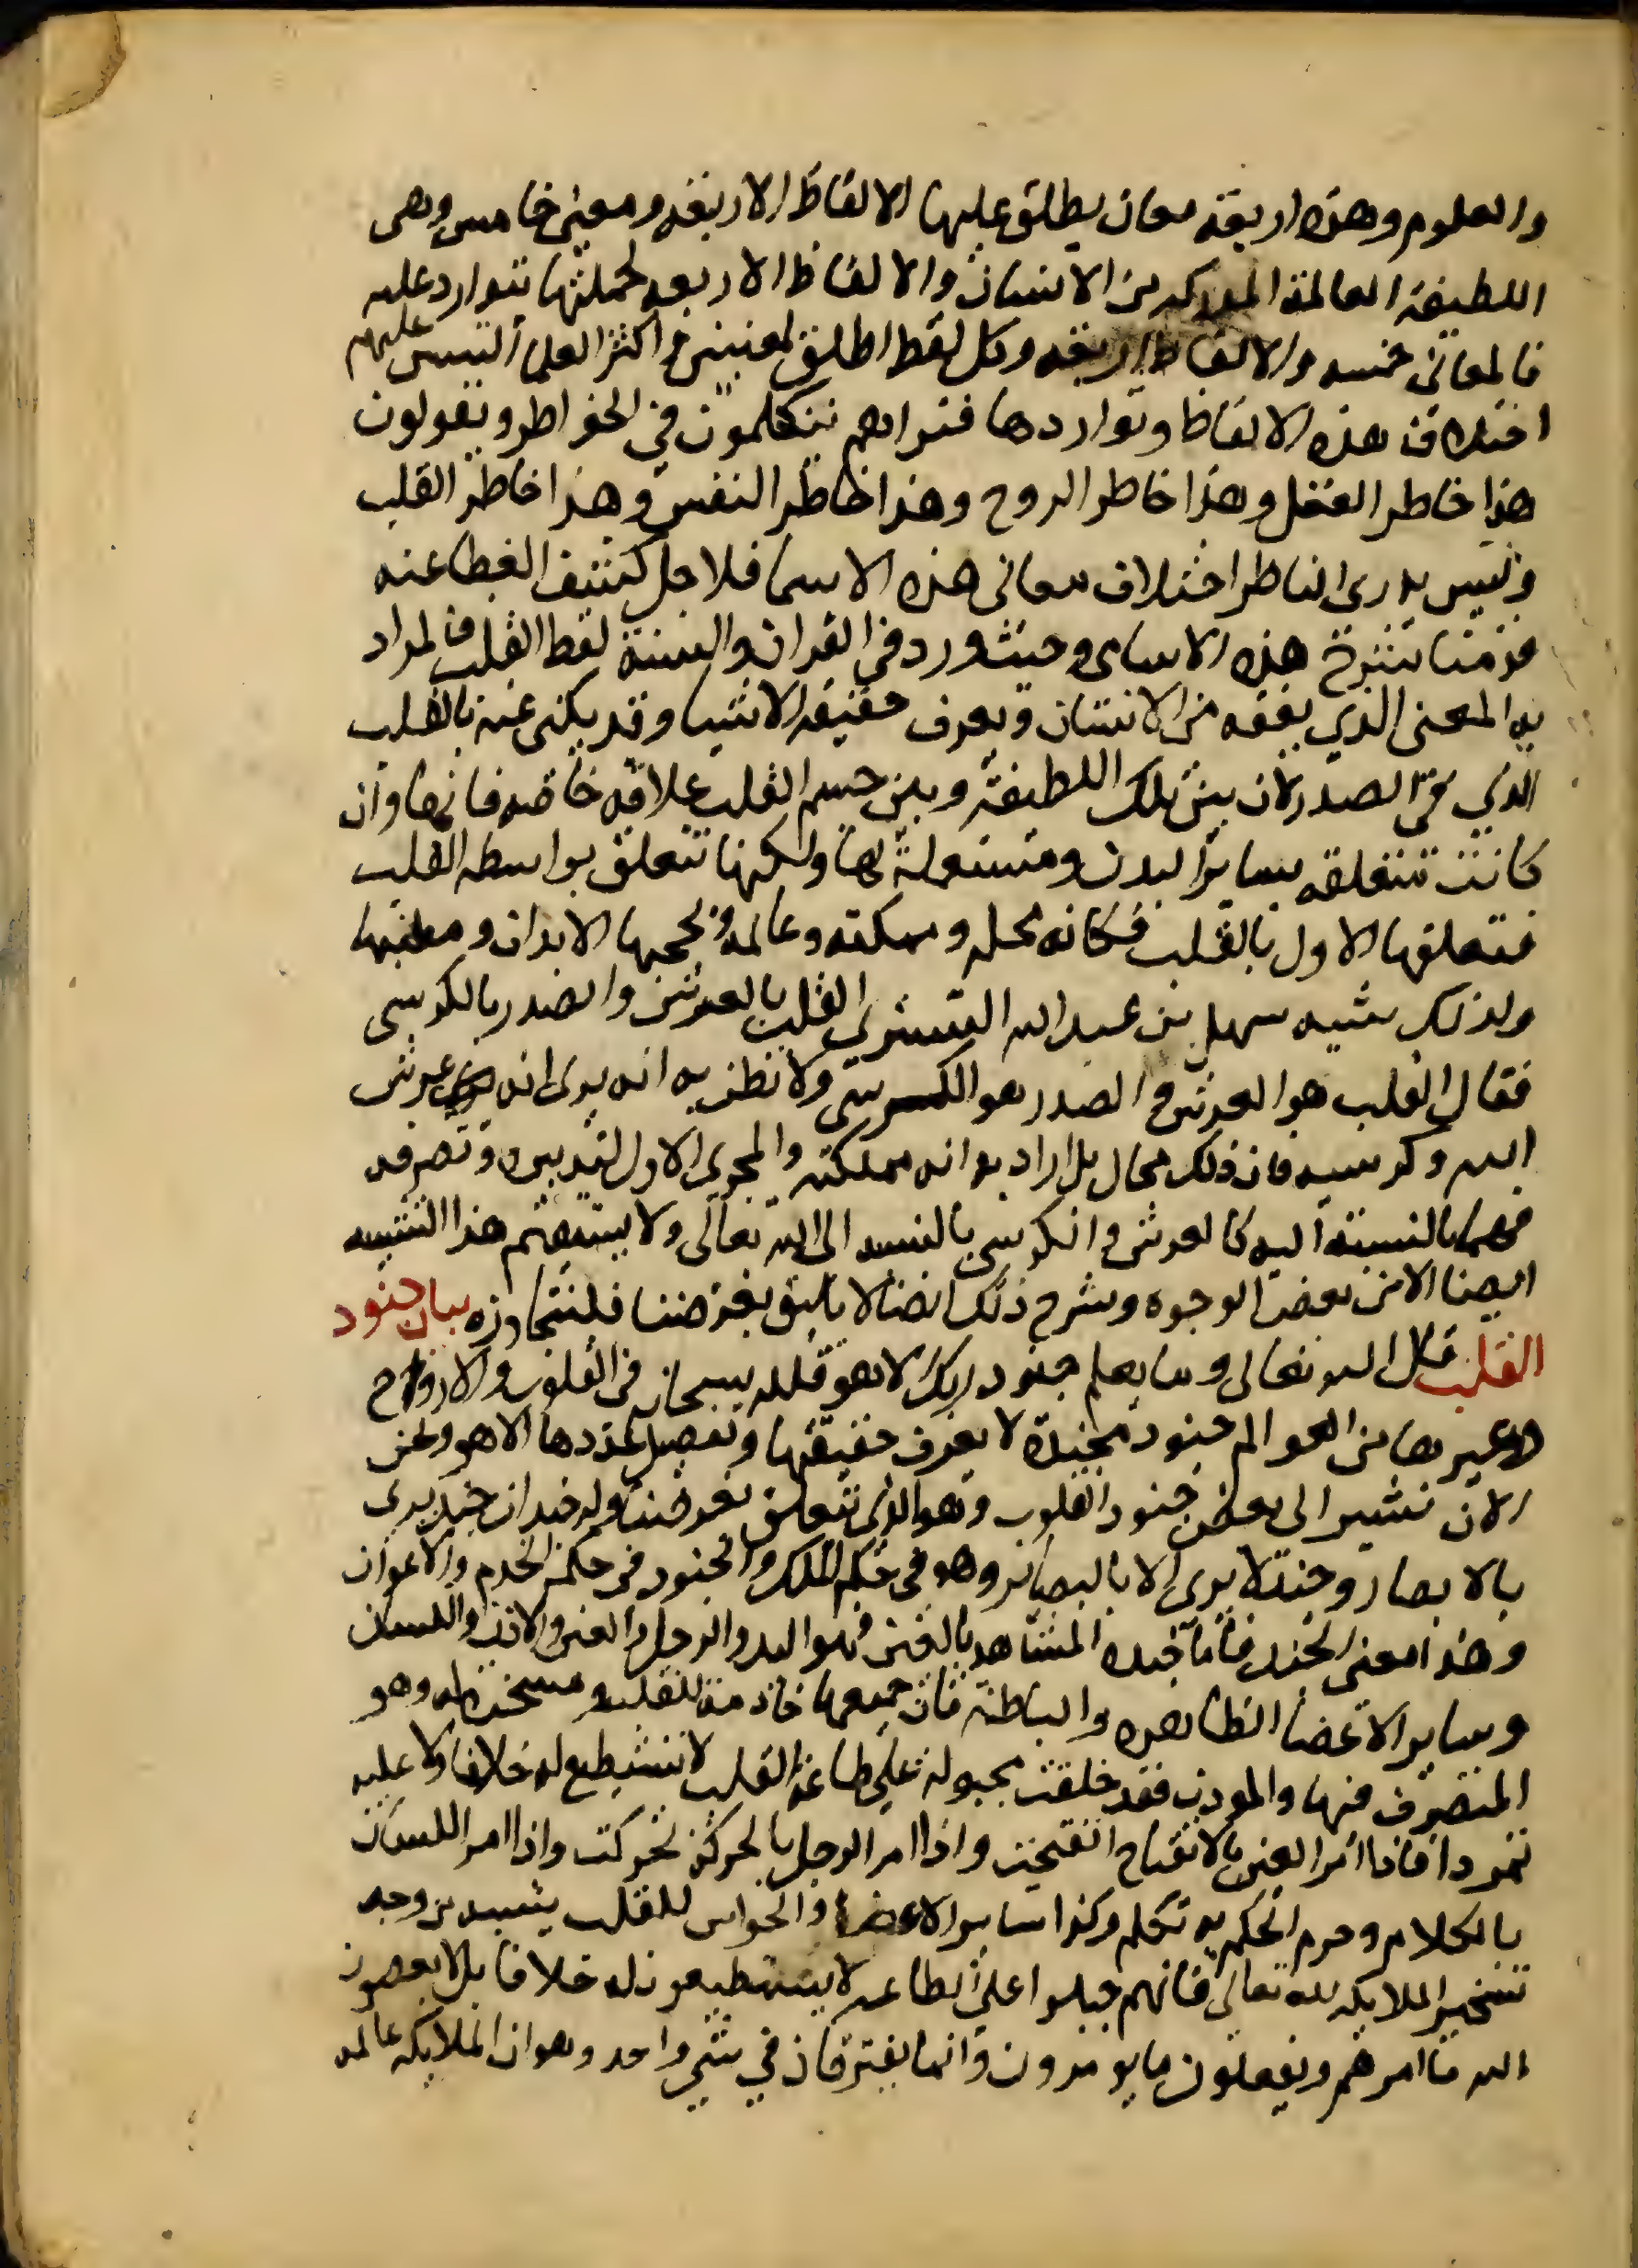 والعلوم وهذه اربعة معان يطلق عليها الالفاظ الاربعة ومعنى خامس وهى
اللطيفة العالمة المدركة من الانسان والالفاظ الاربعه لجملتها يتوارد عليه
فالمعانى خمسه والالفاظ اربعه وكل لفظ اطلق لمعنيين واكثر العلما التبس عليهم
اختلاف هذه الالفاظ وتواردها فتراهم يتكلمون في الخواطر ويقولون
هذا خاطر العقل وهذا خاطر الروح وهذا خاطر النفس وهذا خاطر القلب
وليس يدرى الناظر اختلاف معانى هذه الاسما فلاجل كشف الغطا عنه
قدمنا شرح هذه الاسامى وحيث ورد فى القران والسنة لفظ القلب فالمراد
به المعنى الذي يفقه من الانسان ويعرف حقيقة الاشيا وقد يكنى عنه بالقلب
الذي في الصدر لان بين تلك اللطيفة وبين جسم القلب علاقه خاصه فانها وان
كانت متعلقه بساير البدن ومستعملة لها ولكنها تتعلق بواسطه القلب
فتعلقها الاول بالقلب فكانه محله ومملكته وعالمه ومطيتها
ولذلك شبه سهل بن عبد الله التستري القلب بالعرش والصدر بالكرسى
فقال القلب هو العرش والصدر هو الكرسي ولا تظن به انه يرى انه عرش
الله وكرسيه فان ذلك محال بل اراد به انه مملكته والمجرى الاول لتدبيره وتصرفه
فهما بالنسبة اليه كالعرش والكرسى بالنسبه الى الله تعالى ولا يستقيم هذا التشبيه
ايضا الا من بعض الوجوه وشرح ذلك ايضا لا يليق بغرضنا فلنتجاوزه بيان جنود
القلب قال الله تعالى وما يعلم جنود ربك الا هو فلله سبحانه فى القلوب والارواح
وغيرها من العوالم جنود مجندة لا يعرف حقيقتها وتفصيل عددها الا هو ونحن
الان نشير الى بعض جنود القلوب وهو الذى يتعلق بغرضنا وله جندان جند يرى
بالابصار وجند لا يرى الا بالبصائر وهو في حكم الملك والجنود فى حكم الخدم والاعوان
وهذا معنى الجند فاما جنده المشاهد بالعين فهو اليد والرجل والعين والاذن واللسان
وساير الاعضا الظاهره والباطنة فان جميعها خادمة للقلب ومسخرة له وهو
المتصرف فيها والمودب فقد خلقت مجبولة على طاعة القلب لا تستطيع له خلافا ولا عليه
تمردا فاذا امر العين بالانفتاح انفتحت واذا امر الرجل بالحركة تحركت واذا امر اللسان
بالكلام وجزم الحكم به تكلم وكذا ساير الاعضا والحواس للقلب يشبه من وجه
تسخير الملايكه لله تعالى فانهم جبلوا على الطاعه لا يستطيعون له خلافا بل لا يعصون
الله ما امرهم ويفعلون ما يومرون وانما يفترقان في شي واحد وهو ان الملايكه عالمه